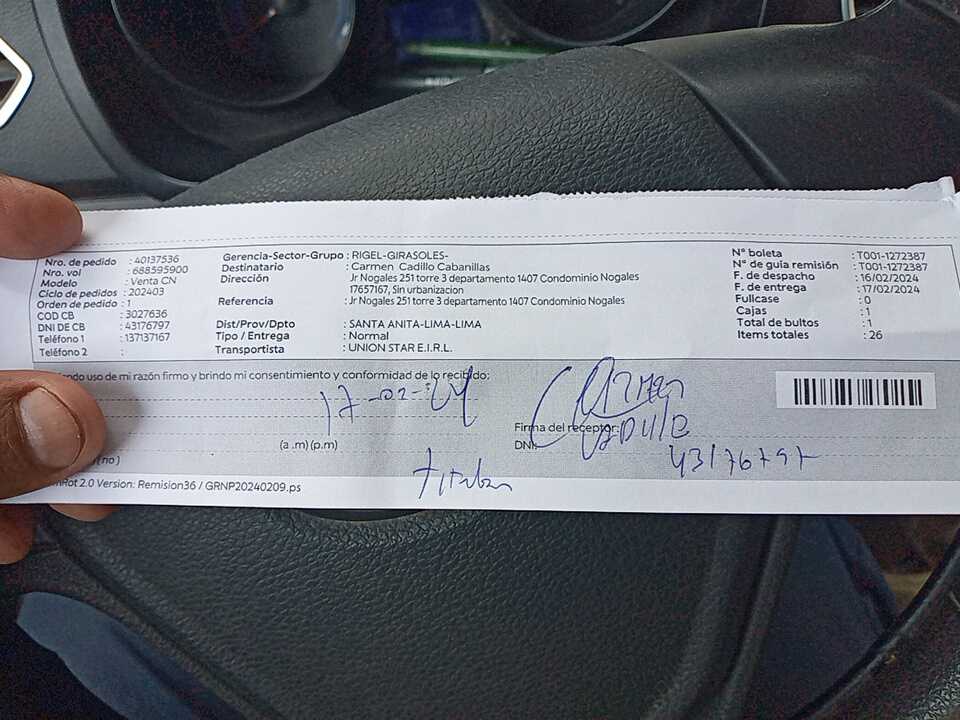 Nro. de pedido : 40137536
Nro. vol : 688595900
Modelo : Venta CN
Ciclo de pedidos : 202403
Orden de pedido : 1
COD CB : 3027636
DNI DE CB : 43176797
Teléfono 1 : 137137167
Teléfono 2 :
Gerencia-Sector-Grupo : RIGEL-GIRASOLES-
Destinatario : Carmen Cadillo Cabanillas
Dirección : Jr Nogales 251 torre 3 departamento 1407 Condominio Nogales
17657167, Sin urbanizacion
Referencia : Jr Nogales 251 torre 3 departamento 1407 Condominio Nogales
Dist/Prov/Dpto : SANTA ANITA-LIMA-LIMA
Tipo / Entrega : Normal
Transportista : UNION STAR E.I.R.L.
N° boleta : T001-1272387
N° de guía remisión : T001-1272387
F. de despacho : 16/02/2024
F. de entrega : 17/02/2024
Fullcase : 0
Cajas : 1
Total de bultos : 1
Items totales : 26
uso de mi razón firmo y brindo mi consentimiento y conformidad de lo recibido:
17-02-24
Carmen
Firma del receptor:
Cadillo
(a .m) (p.m)
DNI:
43176797
(no )
Titular
Rot 2.0 Version: Remision36 / GRNP20240209.ps